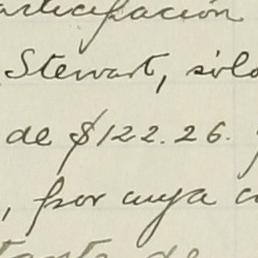 participación
Stewart, sólo
de $122.26.
, por cuya